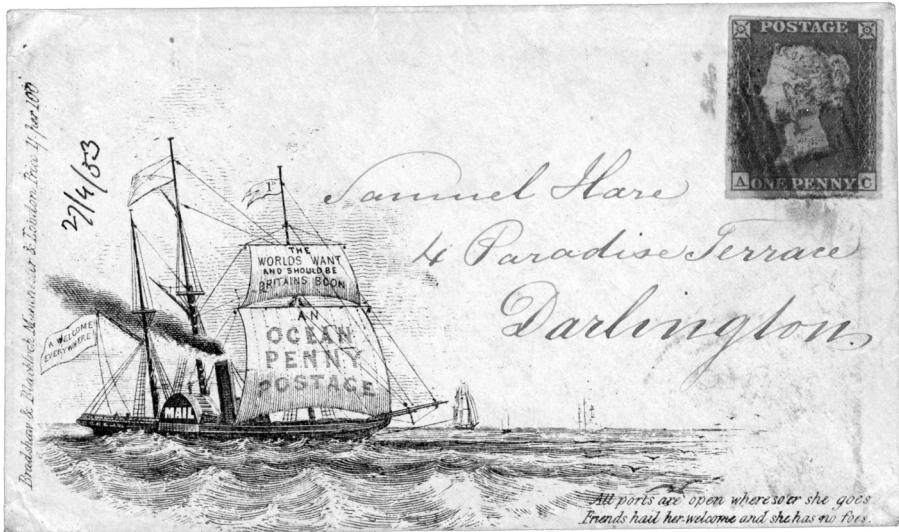 POSTAGE
A ONE PENNY C
27/4/53
Bradshaw & Blacklock Manchester & London. Price 1/ per 100
1D
Samuel Hare
4 Paradise Terrace
Darlington
THE
WORLDS WANT
AND SHOULD BE
BRITAINS BOON
AN
OCEAN
PENNY
POSTAGE
A WELCOME
EVERYWHERE
MAIL
All ports are open wheresoe'er she goes
Friends hail her welcome and she has no foes.